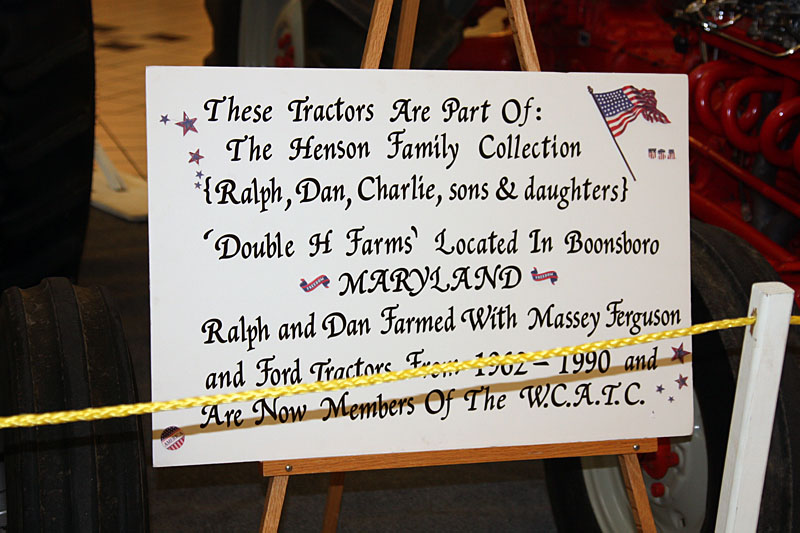 These Tractors Are Part Of:
The Henson Family Collection
{Ralph, Dan, Charlie, sons & daughters}
USA
'Double H Farms' Located In Boonsboro
MARYLAND
Ralph and Dan Farmed With Massey Ferguson
and Ford Tractors From 1962 – 1990 and
Are Now Members Of The W.C.A.T.C.